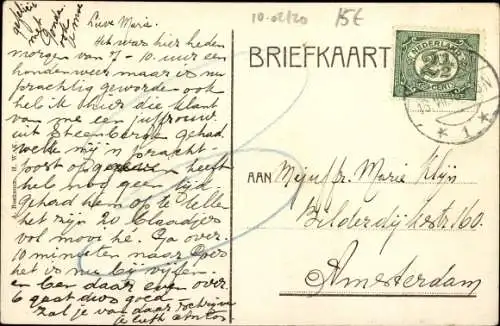 Lieve Marie.
Het was hier heden
morgen van 7-10. uur een
hondenweer maar is nu
prachtig geworden ook
heb ik hier die klant
van me een juffrouw
uit Steenbergen gehad
welke mijn pracht-
post op heeft
heb nog geen tijd
gehad hem op te tellen
het zijn 20 blaadjes
vol mooi hé. Ga over
10 minuten naar
het is nu bij vijfen
en ben daar even over
6 gaat dus goed
zal je van daar schrijven
je liefh Anton
10-02/20
15€
BRIEFKAART
NEDERLAND
2½
CENT
1
AAN Mejuffr. Marie Klijn
Bilderdijkstr. 160.
Amsterdam